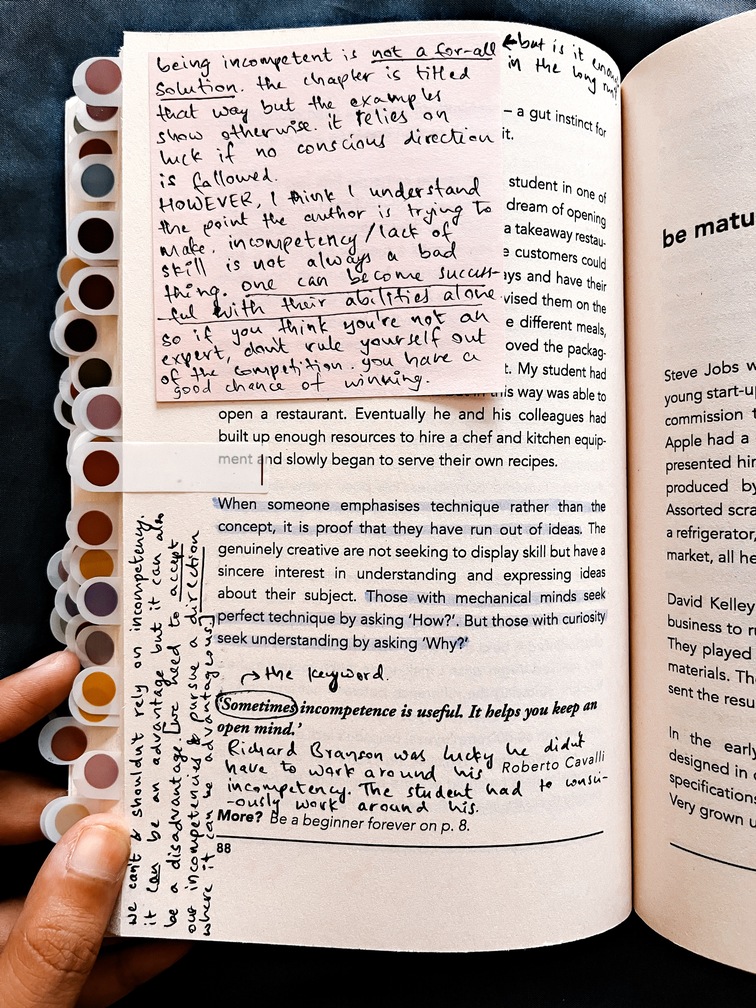 being incompetent is not a for-all
solution. the chapter is titled
that way but the examples
show otherwise. it relies on
luck if no conscious direction
is followed.
HOWEVER, I think I understand
the point the author is trying to
make. incompetency/lack of
skill is not always a bad
thing. one can become success-
-ful with their abilities alone
so if you think you're not an
expert, don't rule yourself out
of the competition. you have a
good chance of winning.
←but is it
in the long run?
– a gut instinct for
it.
student in one of
dream of opening
a takeaway restau-
e customers could
ys and have their
vised them on the
e different meals,
oved the packag-
t. My student had
this way was able to
open a restaurant. Eventually he and his colleagues had
built up enough resources to hire a chef and kitchen equip-
ment and slowly began to serve their own recipes.
When someone emphasises technique rather than the
concept, it is proof that they have run out of ideas. The
genuinely creative are not seeking to display skill but have a
sincere interest in understanding and expressing ideas
about their subject. Those with mechanical minds seek
perfect technique by asking 'How?'. But those with curiosity
seek understanding by asking 'Why?'
→ the keyword.
'Sometimes incompetence is useful. It helps you keep an
open mind.'
Roberto Cavalli
Richard Branson was lucky he didn't
have to work around his
incompetency. The student had to consci-
-ously work around his.
More? Be a beginner forever on p. 8.
88
we can't & shouldn't rely on incompetency.
it can be an advantage but it can also
be a disadvantage. [we need to accept
our incompetencies & pursue a direction
where it can be advantageous.]
be matu
Steve Jobs w
young start-up
commission t
Apple had a
presented hi
produced by
Assorted scra
a refrigerator,
market, all he
David Kelley
business to r
They played
materials. Th
sent the resu
In the early
designed in
specifications
Very grown u